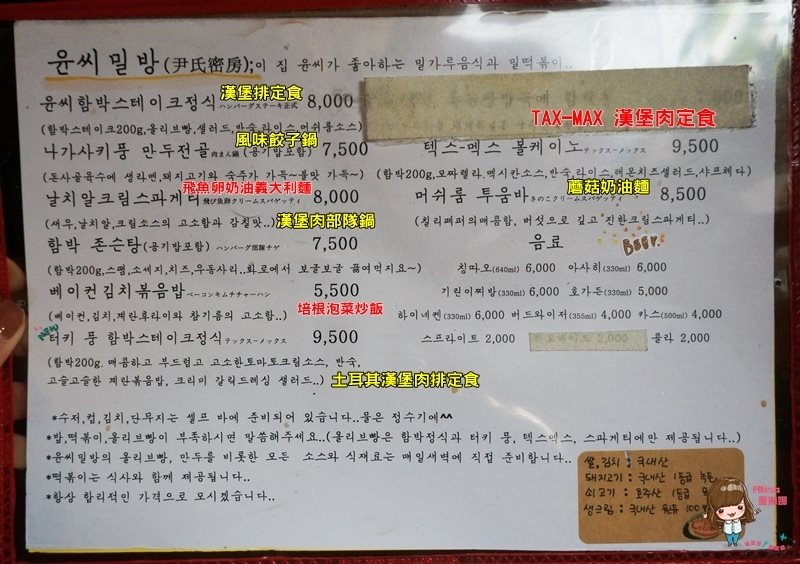 윤씨밀방(尹氏密房);이 집 윤씨가 좋아하는 밀가루음식과 밀떡볶이..
漢堡排定食
윤씨함박스테이크정식 ハンバーグステーキ正式 8,000
(함박스테이크200g,올리브빵,샐러드,반숙,라이스,머쉬룸소스)
風味餃子鍋
나가사키풍 만두전골 肉まん鍋 (공기밥포함) 7,500
(돈사골육수에 생라멘,돼지고기와 숙주가 가득~불맛 가득~)
飛魚卵奶油義大利麵
날치알크림스파게티 飛び魚卵クリームスパゲッティ 8,000
(새우,날치알,크림소스의 고소함과 감칠맛..)
漢堡肉部隊鍋
함박 존슨탕(공기밥포함) ハンバーグ部隊チゲ 7,500
(함박200g,스팸,소세지,치즈,우동사리..화로에서 보글보글 끓여먹지요~)
베이컨김치볶음밥 ベーコンキムチチャーハン 5,500
(베이컨,김치,계란후라이와 참기름의 고소함..)
培根泡菜炒飯
NEW
터키 풍 함박스테이크정식 テックス-メックス 9,500
(함박200g. 매콤하고 부드럽고 고소한토마토크림소스, 반숙,
고슬고슬한 계란볶음밥, 크리미 갈릭드레싱 샐러드..)
土耳其漢堡肉排定食
TAX-MAX 漢堡肉定食
텍스-멕스 볼케이노 テックス-メックス 9,500
(함박200g,모짜렐라,멕시칸소스,반숙,라이스,레몬치즈샐러드,샤프체다)
蘑菇奶油麵
머쉬룸 투움바 きのこクリームスパゲッティ 8,500
(칠리페퍼의매콤함, 버섯으로 깊고 진한크림스파게티..)
음료
BEER.
칭따오(640ml) 6,000 아사히(330ml) 6,000
기린이찌방(330ml) 6,000 호가든(330ml) 5,000
하이네켄(330ml) 6,000 버드와이저(355ml) 4,000 카스(500ml) 4,000
스프라이트 2,000 2,000 콜라 2,000
*수저,컵,김치,단무지는 셀프 바에 준비되어 있습니다..물은 정수기에^^
*밥,떡볶이,올리브빵이 부족하시면 말씀해주세요..(올리브빵은 함박정식과 터키 풍, 텍스멕스, 스파게티에만 제공됩니다..)
*윤씨밀방의 올리브빵, 만두를 비롯한 모든 소스와 식재료는 매일새벽에 직접 준비합니다..
*떡볶이는 식사와 함께 제공됩니다..
*항상 합리적인 가격으로 모시겠습니다..
쌀,김치 : 국내산
돼지고기 : 국내산 1등급
쇠고기 : 호주산 1등급
생크림 : 국내산 원유 100